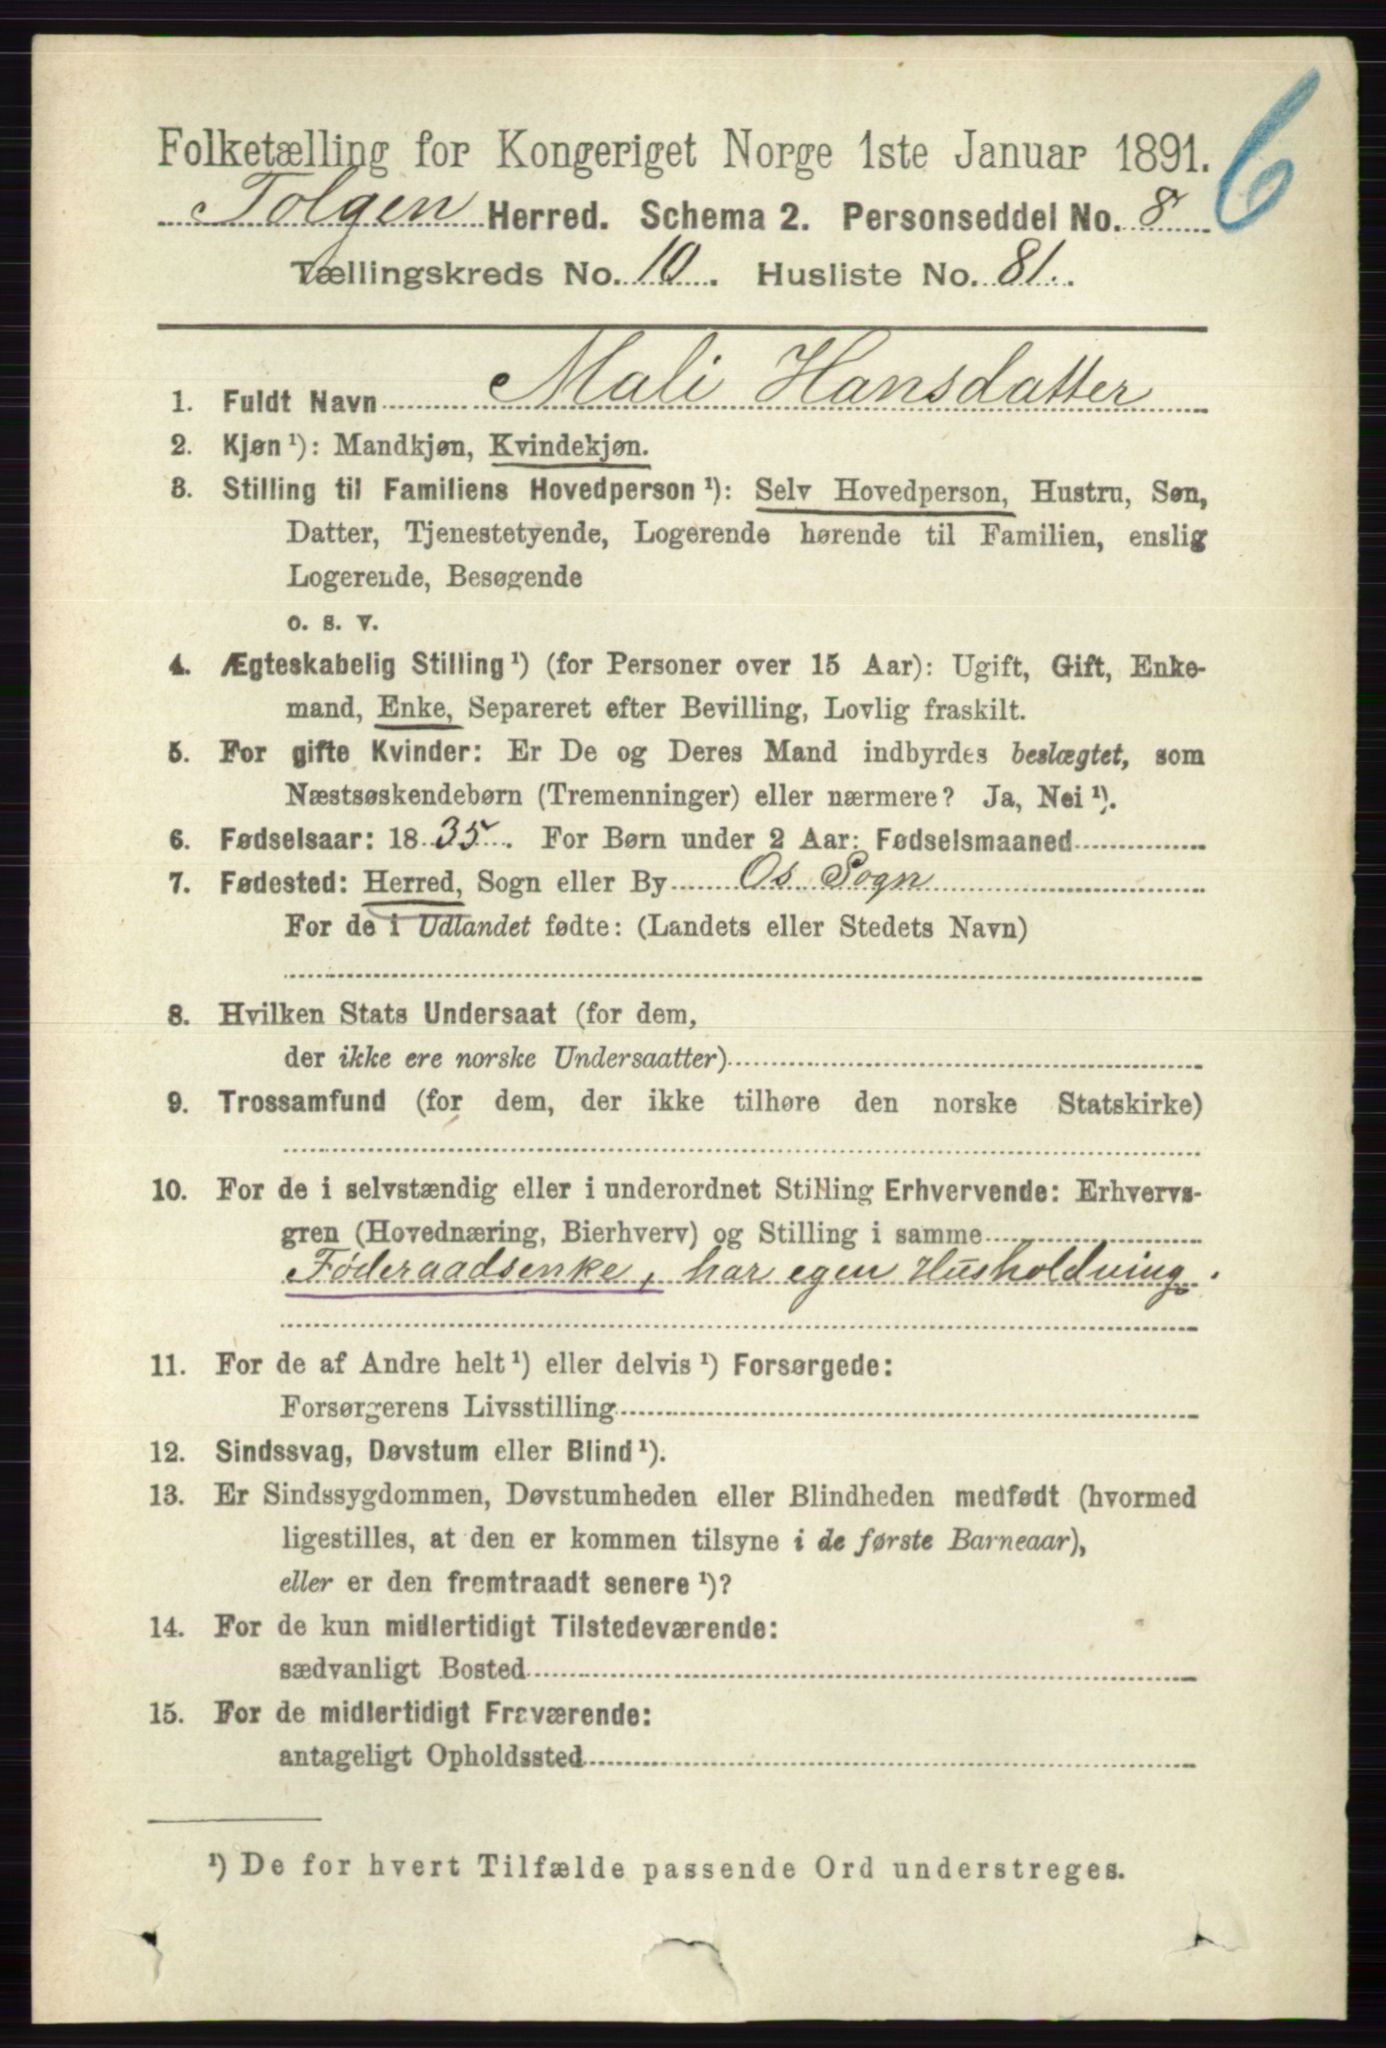 Folketælling for Kongeriget Norge 1ste Januar 1891. 6
Tolgen Herred. Schema 2. Personseddel No. 8
Tællingskreds No. 10. Husliste No. 81.
1. Fuldt Navn Mali Hansdatter
2. Kjøn ¹): Mandkjøn, Kvindekjøn.
3. Stilling til Familiens Hovedperson ¹): Selv Hovedperson, Hustru, Søn,
Datter, Tjenestetyende, Logerende hørende til Familien, enslig
Logerende, Besøgende
o. s. v.
4. Ægteskabelig Stilling ¹) (for Personer over 15 Aar): Ugift, Gift, Enke-
mand, Enke, Separeret efter Bevilling, Lovlig fraskilt.
5. For gifte Kvinder: Er De og Deres Mand indbyrdes beslægtet, som
Næstsøskendebørn (Tremenninger) eller nærmere? Ja, Nei ¹).
6. Fødselsaar: 1835. For Børn under 2 Aar: Fødselsmaaned
7. Fødested: Herred, Sogn eller By Os Sogn
For de i Udlandet fødte: (Landets eller Stedets Navn)
8. Hvilken Stats Undersaat (for dem,
der ikke ere norske Undersaatter)
9. Trossamfund (for dem, der ikke tilhøre den norske Statskirke)
10. For de i selvstændig eller i underordnet Stilling Erhvervende: Erhvervs-
gren (Hovednæring, Bierhverv) og Stilling i samme
Føderaadsenke, har egen Husholdning.
11. For de af Andre helt ¹) eller delvis ¹) Forsørgede:
Forsørgerens Livsstilling
12. Sindssvag, Døvstum eller Blind ¹).
13. Er Sindssygdommen, Døvstumheden eller Blindheden medfødt (hvormed
ligestilles, at den er kommen tilsyne i de første Barneaar),
eller er den fremtraadt senere ¹)?
14. For de kun midlertidigt Tilstedeværende:
sædvanligt Bosted
15. For de midlertidigt Fraværende:
antageligt Opholdssted
¹) De for hvert Tilfælde passende Ord understreges.